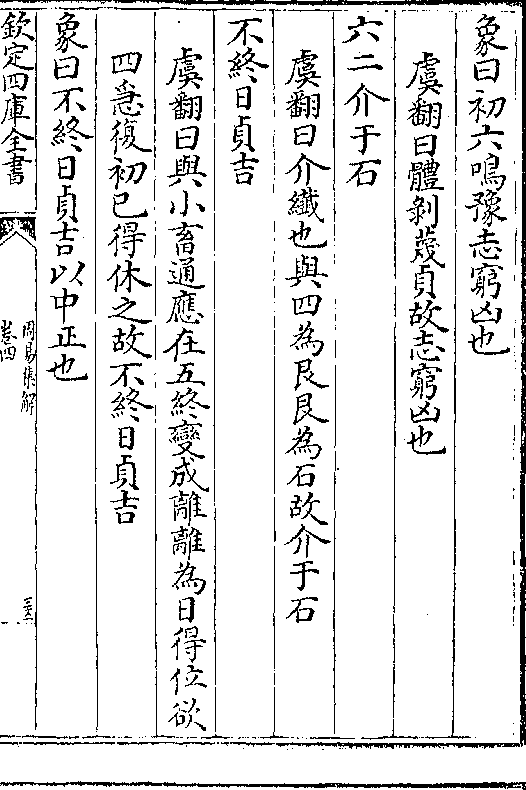 象曰初六鳴豫志窮凶也
虞翻曰體剝蔑貞故志窮凶也
六二介于石
虞翻曰介纖也與四為艮艮為石故介于石
不終日貞吉
虞翻曰與小畜通應在五終變成離離為日得位欲
四急復初已得休之故不終日貞吉
象曰不終日貞吉以中正也
欽定四庫全書
周易集解
卷四